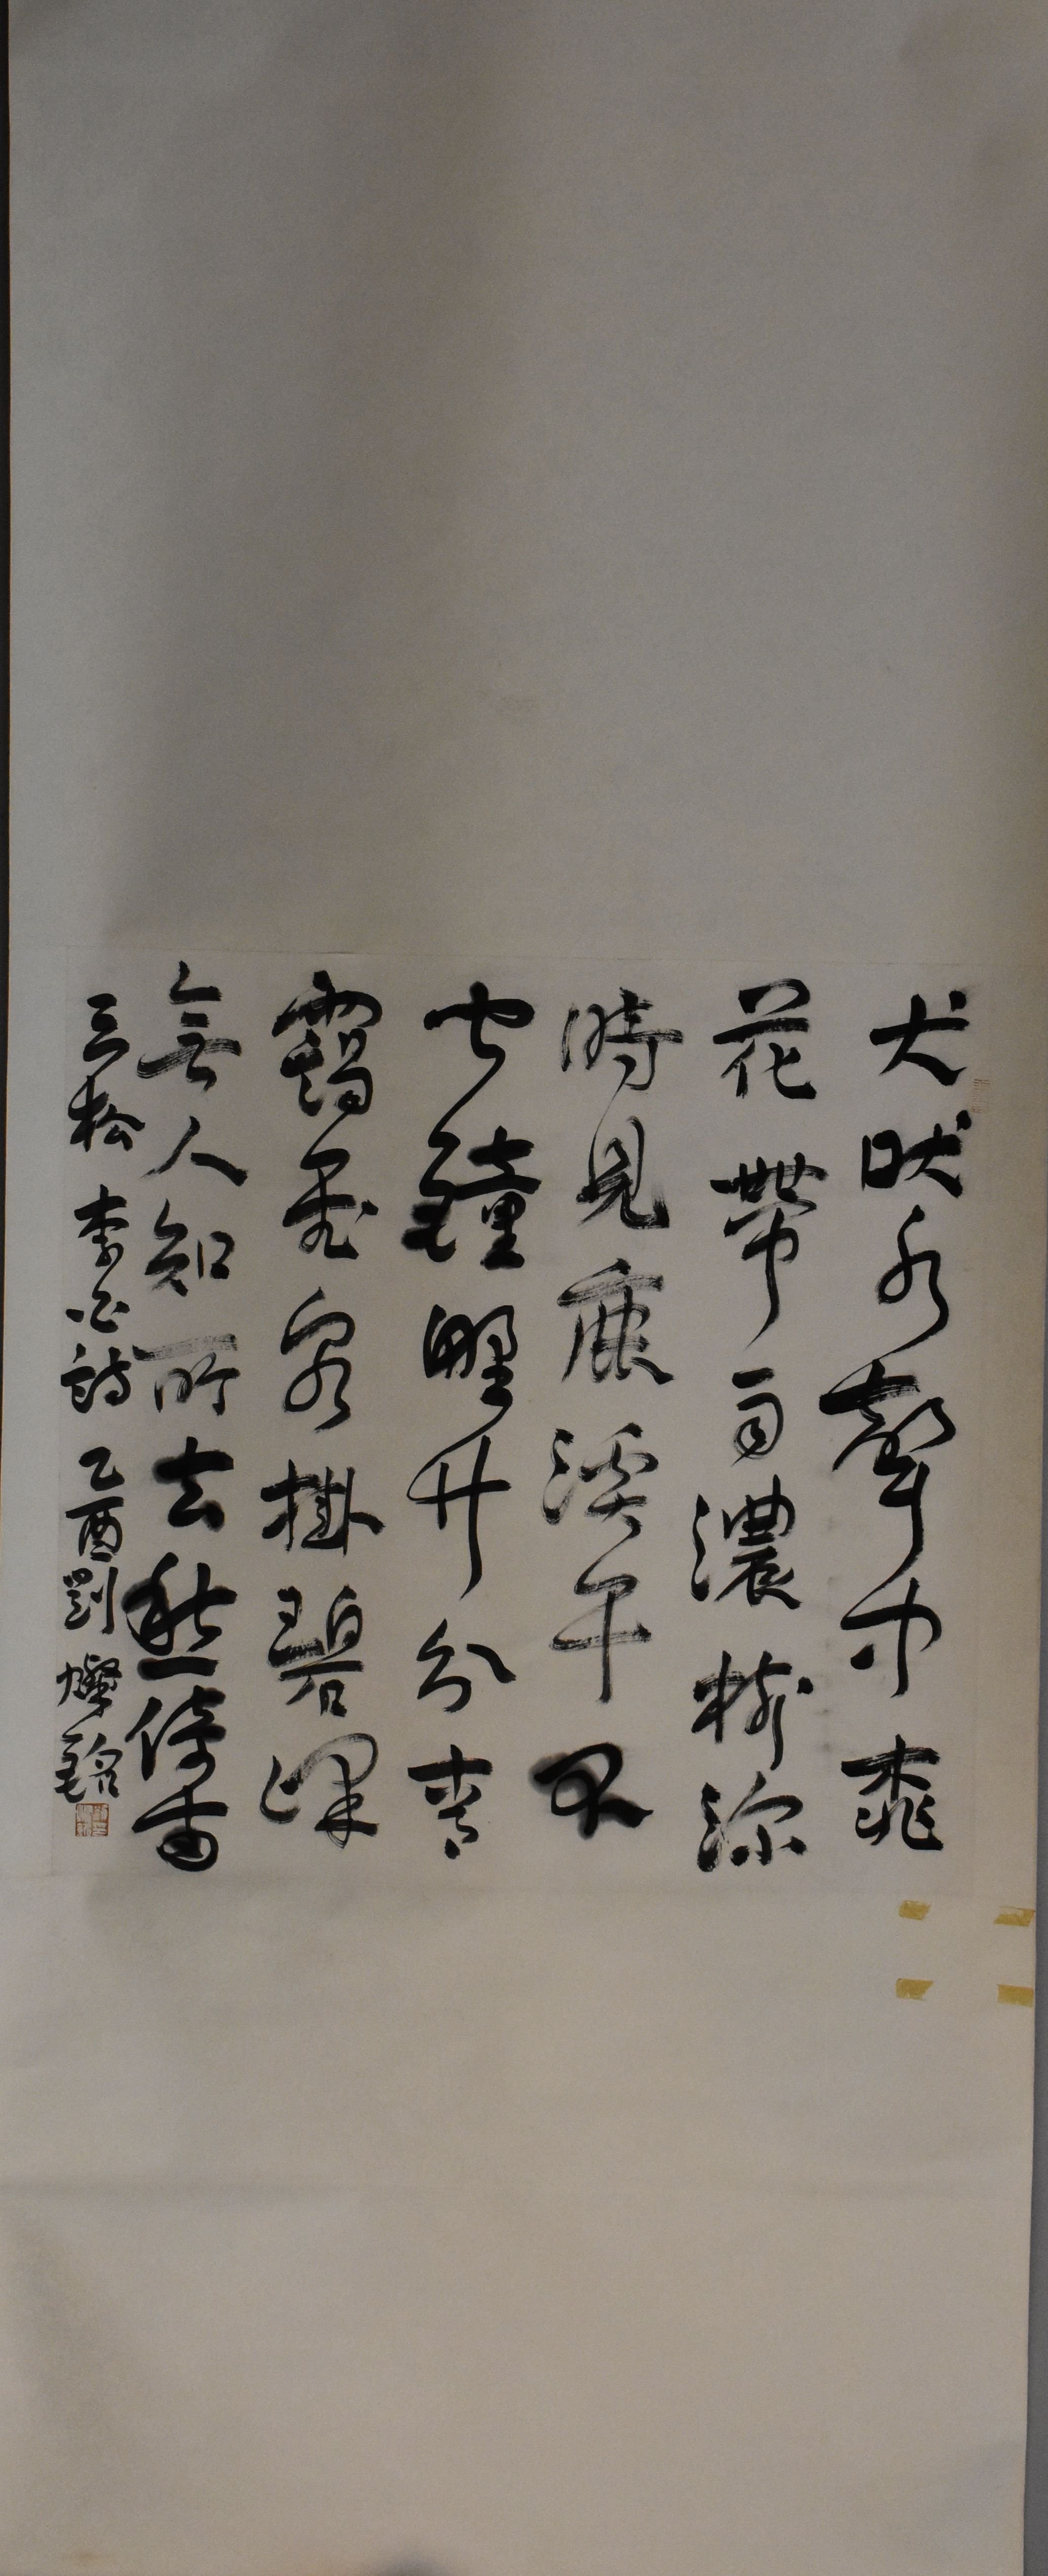 犬吠水聲中桃
花帶雨濃樹深
時見鹿溪午不
聞鐘野竹分青
靄飛泉掛碧峰
無人知所去愁倚兩
三松 李白詩 乙酉劉燦銘